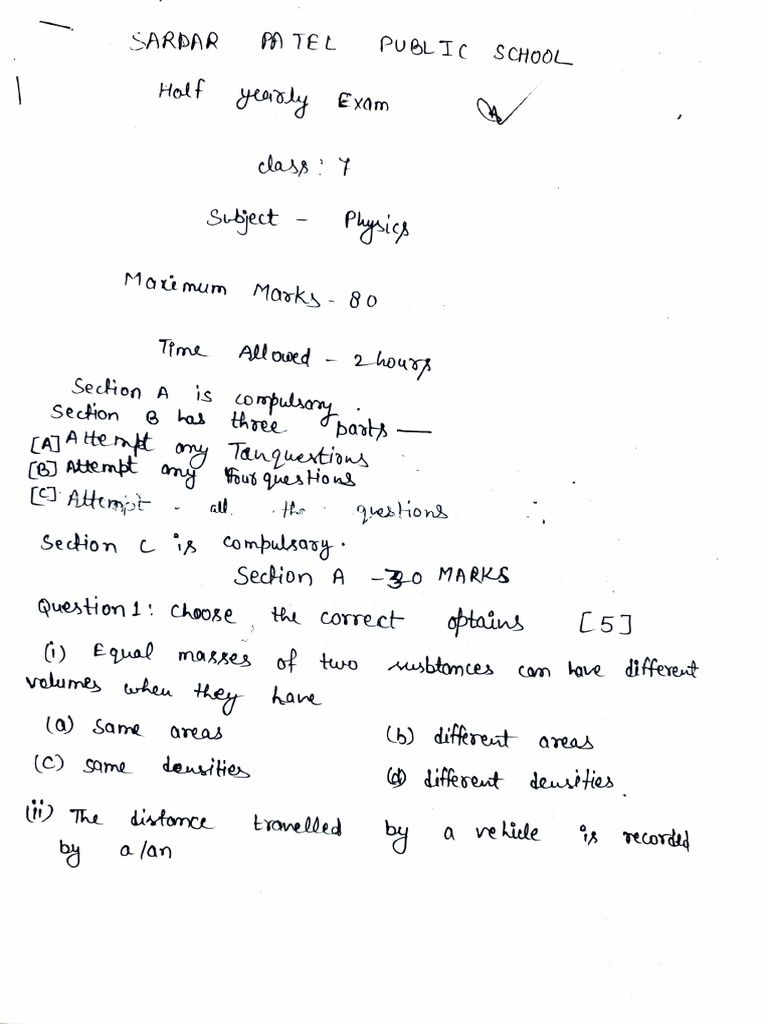 SARDAR PATEL PUBLIC SCHOOL
Half yearly Exam
A
class: 7
Subject - Physics
Maximum Marks - 80
Time Allowed - 2 hours
Section A is compulsory.
Section B has three parts —
[A] Attempt any Tanquestions
[B] Attempt any four questions
[C] Attempt all the questions
Section C is compulsory.
Section A - 30 MARKS
Question 1: choose the correct optains [5]
(i) Equal masses of two susbtances can have different
volumes when they have
(a) same areas (b) different areas
(c) same densities (d) different densities.
(ii) The distance travelled by a vehicle is recorded
by a/an